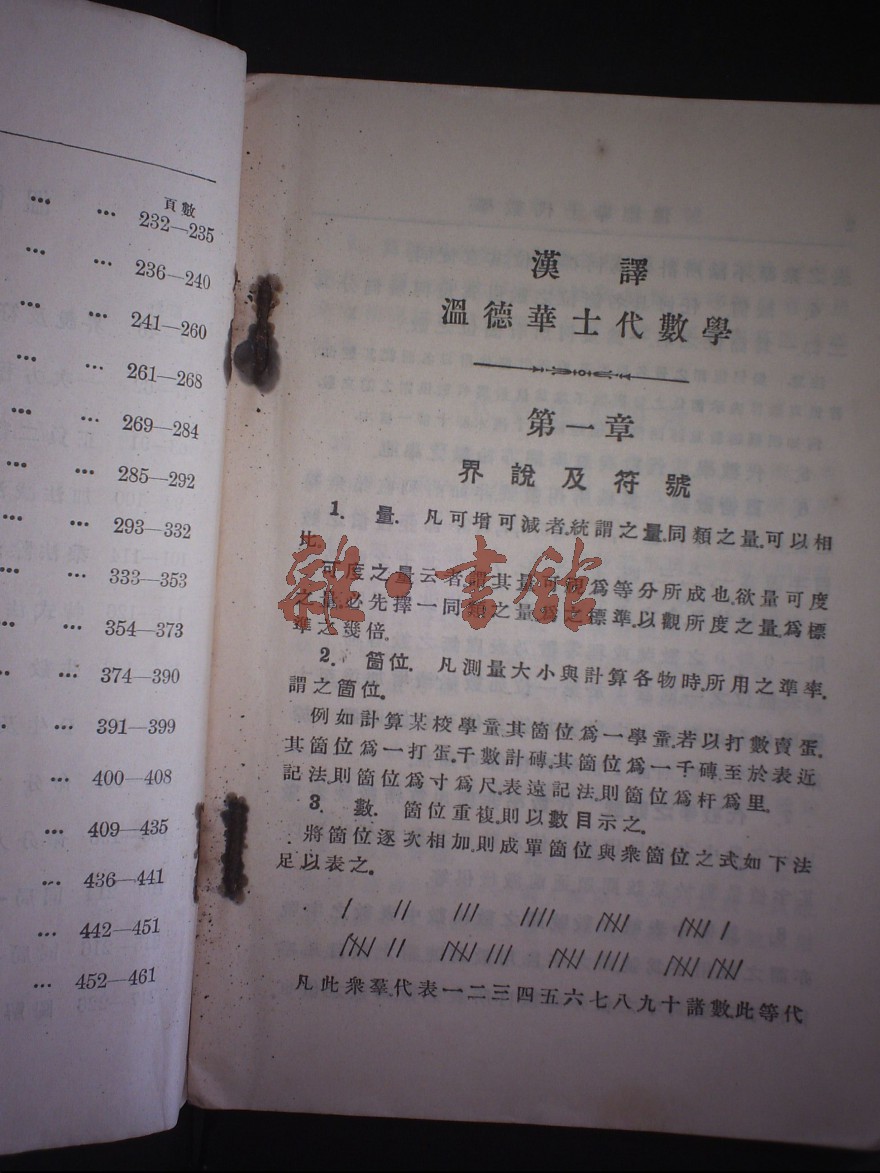 頁數
... ... 232—235
... ... 236—240
... ... 241—260
... ... 261—268
... ... 269—284
... ... 285—292
... ... 293—332
... ... 333—353
... ... 354—373
... ... 374—390
... ... 391—399
... 400—408
... 409—435
... 436—441
... 442—451
... 452—461
漢譯
溫德華士代數學
第一章
界說及符號
1. 量. 凡可增可減者,統謂之量,同類之量,可以相
比.
可度之量云者,謂其量可視爲等分所成也,欲量可度
之量,必先擇一同類之量,爲之標準,以觀所度之量,爲標
準之幾倍.
2. 箇位. 凡測量大小與計算各物時,所用之準率,
謂之箇位.
例如計算某校學童,其箇位爲一學童,若以打數賣蛋,
其箇位爲一打蛋,千數計磚,其箇位爲一千磚,至於表近
記法,則箇位爲寸爲尺,表遠記法,則箇位爲杆爲里.
3. 數. 箇位重複,則以數目示之.
將箇位逐次相加,則成單箇位與衆箇位之式如下法
足以表之.
凡此衆羣,代表一二三四五六七八九十諸數,此等代
雜·書館